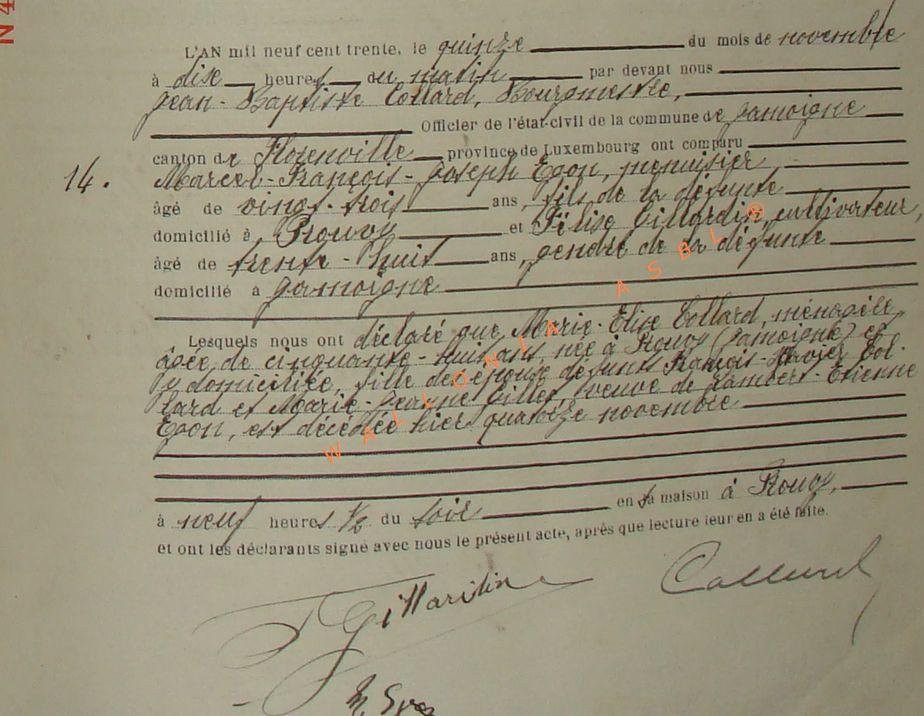 N 4
L'AN mil neuf cent trente, le quinze du mois de novembre
à dix heures du matin par devant nous
Jean-Baptiste Collard, Bourgmestre,
Officier de l'état-civil de la commune de Jamoigne
canton de Florenville province de Luxembourg ont comparu
14. Marcel-François-Joseph Egon, menuisier,
âgé de vingt-trois ans, fils de la défunte
domicilié à Prouvy et Félise Gillardin, cultivateur
âgé de trente-huit ans, gendre de la défunte
domicilié à Jamoigne
Lesquels nous ont déclaré que Marie-Elise Collard, ménagère,
âgée de cinquante-huit ans, née à Prouvy (Jamoigne) et
y domiciliée, fille de époux défunts François-Xavier Col-
lard et Marie-Jeanne Gillet, veuve de Lambert-Etienne
Egon, est décédée hier quatorze novembre
à neuf heures 1/2 du soir en sa maison à Prouvy,
et ont les déclarants signé avec nous le présent acte, après que lecture leur en a été faite.
Gillardin Collard
WALLONIA ASBL ®